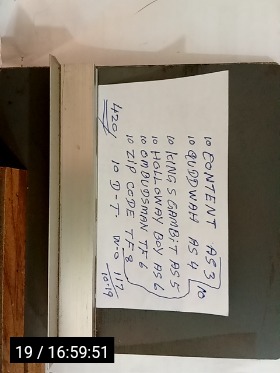 10 CONTENT AS 3
10 QUDDWAH AS 4
10 KING S GAMBIT AS 5
10 HOLLOWAY BOY AS 6
10 OMBUDSMAN TF 6
10 ZIP CODE TF 8
10 D-T W-O
420/
117
10-19
19 / 16:59:51